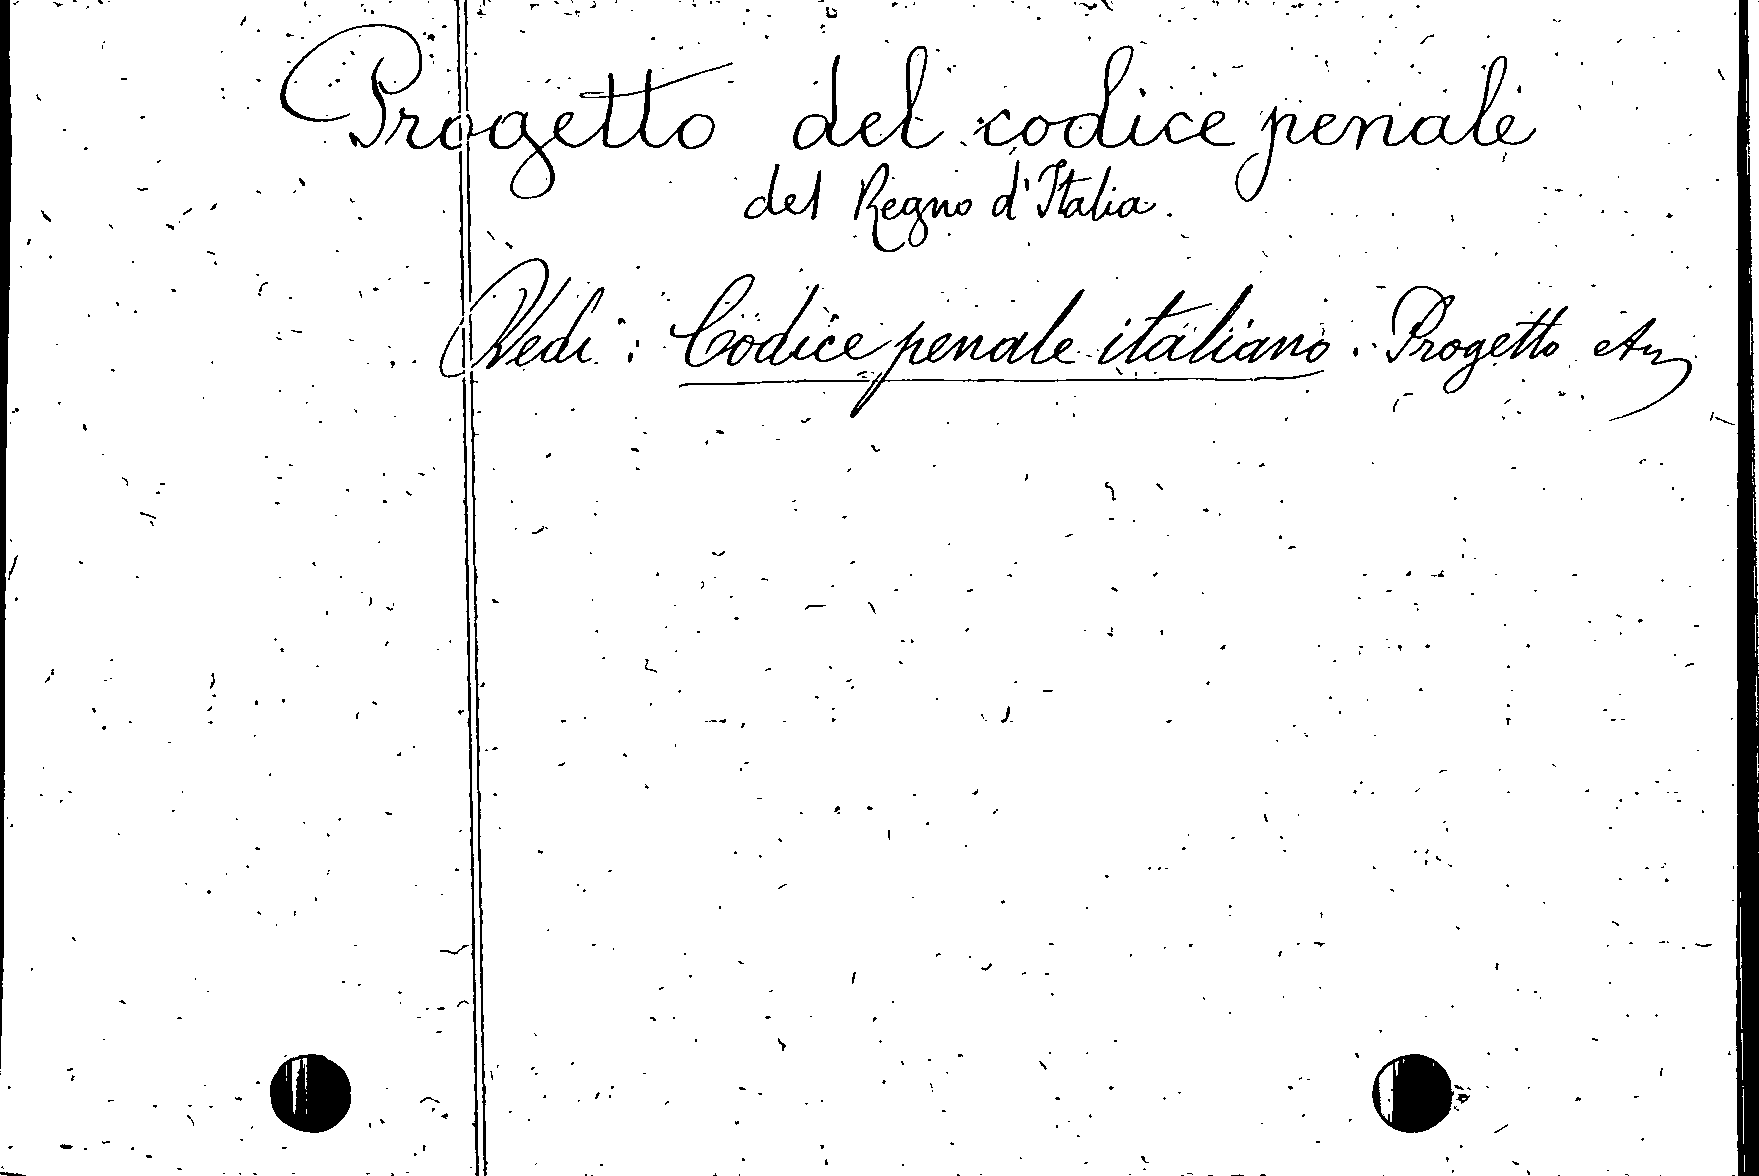 Progetto del codice penale
del Regno d'Italia.
Vedi: Codice penale italiano. Progetto